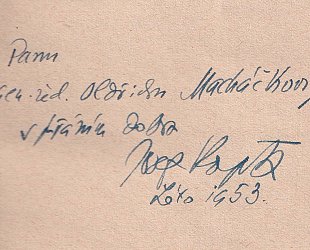 Panu
řed. Oldřichu Macháčkovi
v přáním dobra
Josef Kopta
Léto 1953.